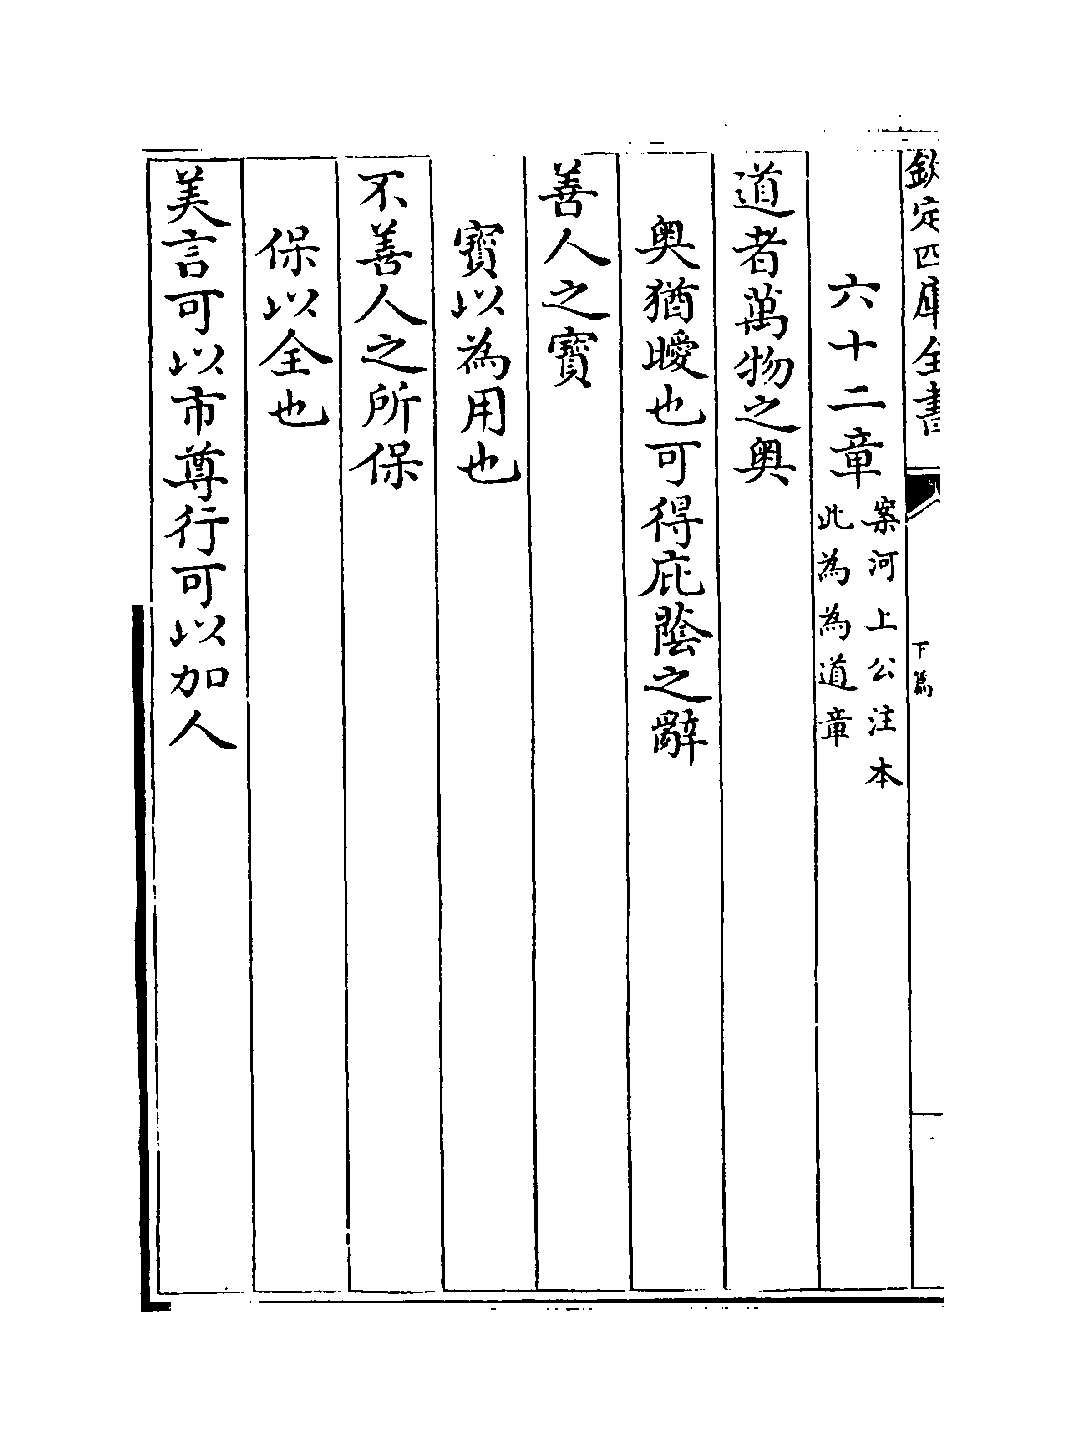 欽定四庫全書
下篇
六十二章
案河上公注本
此為為道章
道者萬物之奥
奥猶曖也可得庇蔭之辭
善人之寳
寳以為用也
不善人之所保
保以全也
美言可以市尊行可以加人